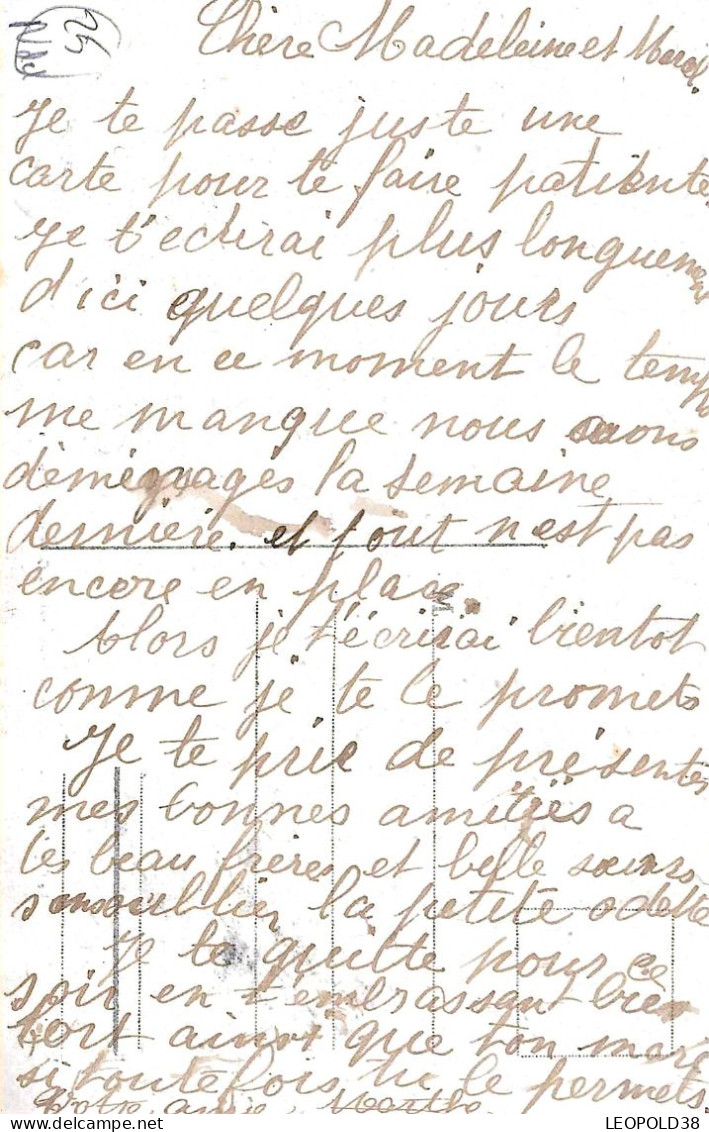 Chère Madeleine et Marcel.
Je te passe juste une
carte pour te faire patienter
Je t'ecrirai plus longuement
d'ici quelques jours
car en ce moment le temps
me manque nous avons
démenagés la semaine
dernière. et tout n'est pas
encore en place.
Alors je t'écrirai bientot
comme je te le promets
Je te prie de présenter
mes bonnes amitiés a
tes beau frères et belle soeurs
sans oublier la petite Odette
Je te quitte pour ce
soir en t'embrassant bien
fort ainsi que ton mari
si toutefois tu le permets.
Votre amie, Marthe
LEOPOLD38